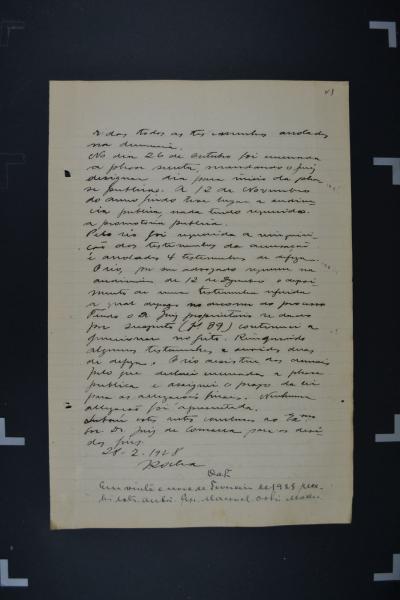 43
e das todos as tes
na denuncia.
No dia 26 de Outubro foi encerrada
a phase secreta, mandando o juiz
designar dia para inicio da phase
se publica. A 12 de Novembro
do anno findo teve lugar a audien
cia publica, nada tendo requerido
a promotoria publica.
Pelo réo foi requerida a reinquiri-
ção das testemunhas da accusação
e arroladas 4 testemunhas de defeza.
O réo, por seu advogado requereu na
audiencia de 12 de Dezembro o depoi-
mento de uma testemunha referida
a qual depoz no decorrer do processo
Tendo o Dr. Juiz proprietario se dado
por suspeito (fs 89) continuei a
funccionar no feito. Reinquiridas
algumas testemunhas e ouvidas duas
de defeza. O réo desistiu das demais
pelo que declarei encerrada a phase
publica e assignei o prazo da lei
para as allegações finaes. Nenhuma
allegação foi apresentada.
Subam estes autos conclusos ao Exmo
Snr. Dr. Juiz de Comarca para os devi-
dos fins.
28-2-1928
Rocha
Data
Em vinte e nove de Fevereiro de 1928 rece-
bi estes autos. Manoel